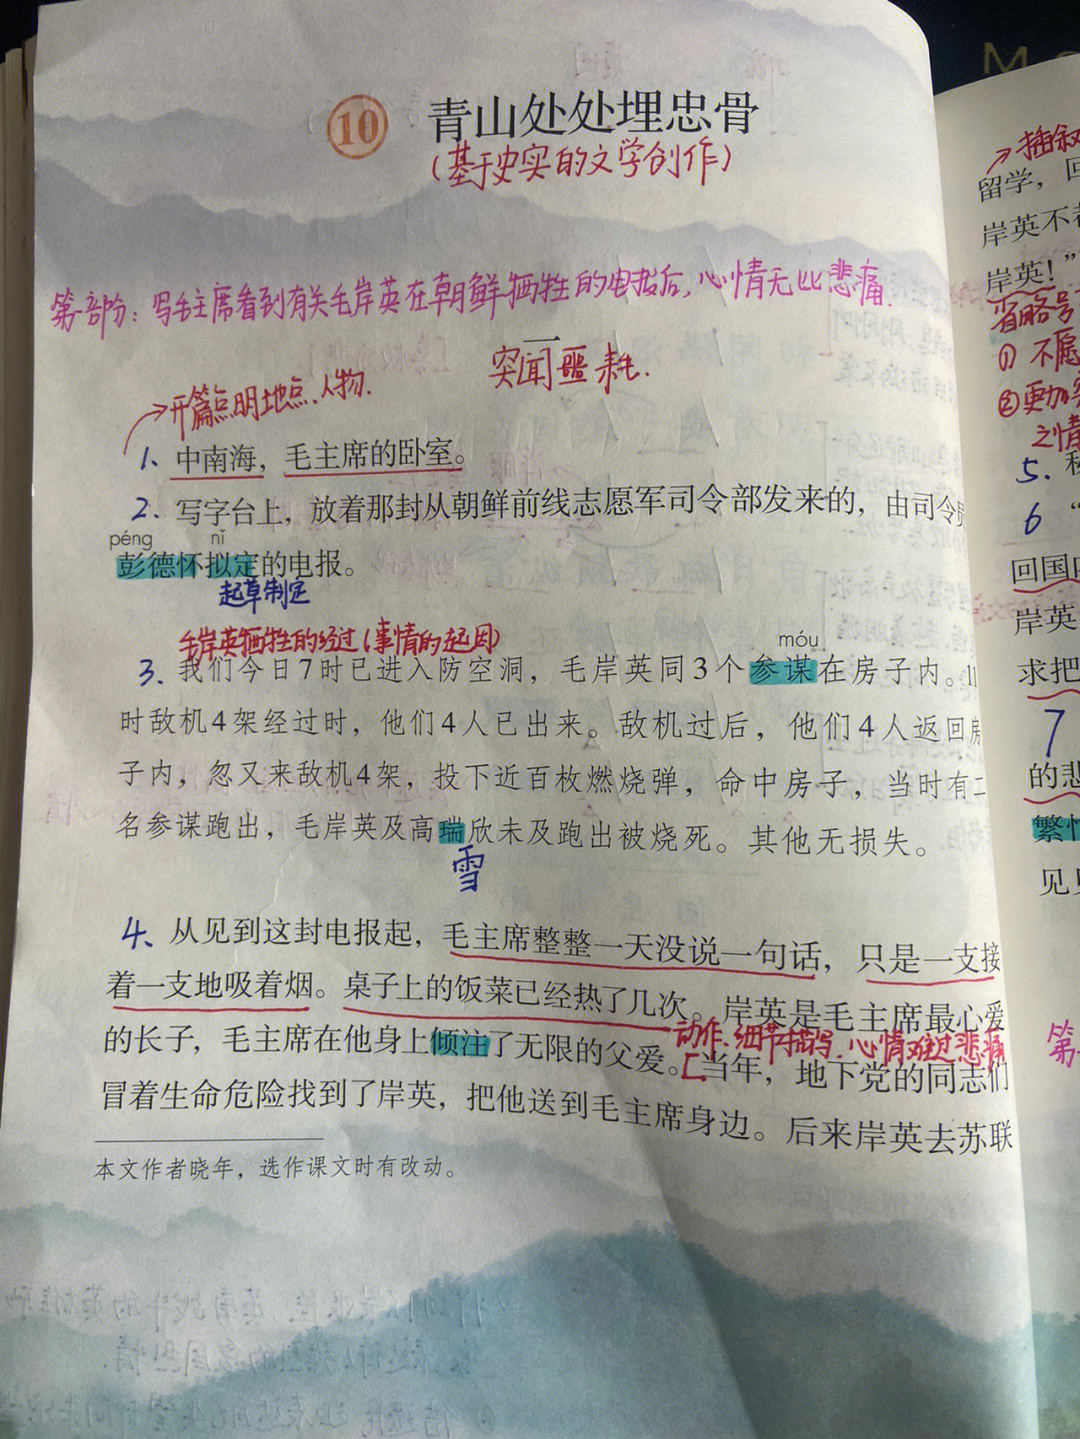 10 青山处处埋忠骨
(基于史实的文学创作)
第一部份：写毛主席看到有关毛岸英在朝鲜牺牲的电报后，心情无比悲痛.
一
突闻噩耗.
开篇点明地点、人物.
1、中南海，毛主席的卧室。
2、写字台上，放着那封从朝鲜前线志愿军司令部发来的，由司令员
péng nǐ
彭德怀拟定的电报。
起草制定
毛岸英牺牲的经过(事情的起因)
móu
3、我们今日7时已进入防空洞，毛岸英同3个参谋在房子内。11
时敌机4架经过时，他们4人已出来。敌机过后，他们4人返回房
子内，忽又来敌机4架，投下近百枚燃烧弹，命中房子，当时有二
名参谋跑出，毛岸英及高瑞欣未及跑出被烧死。其他无损失。
雪
4、从见到这封电报起，毛主席整整一天没说一句话，只是一支接
着一支地吸着烟。桌子上的饭菜已经热了几次。岸英是毛主席最心爱
动作、细节描写，心情难过悲痛
的长子，毛主席在他身上倾注了无限的父爱。[当年，地下党的同志们
冒着生命危险找到了岸英，把他送到毛主席身边。后来岸英去苏联
本文作者晓年，选作课文时有改动。
插叙
留学，回
岸英不
岸英！”
省略号
① 不愿
②更加
之情
5.
6 “
回国
岸英
求把
7
的悲
繁忙
见
第